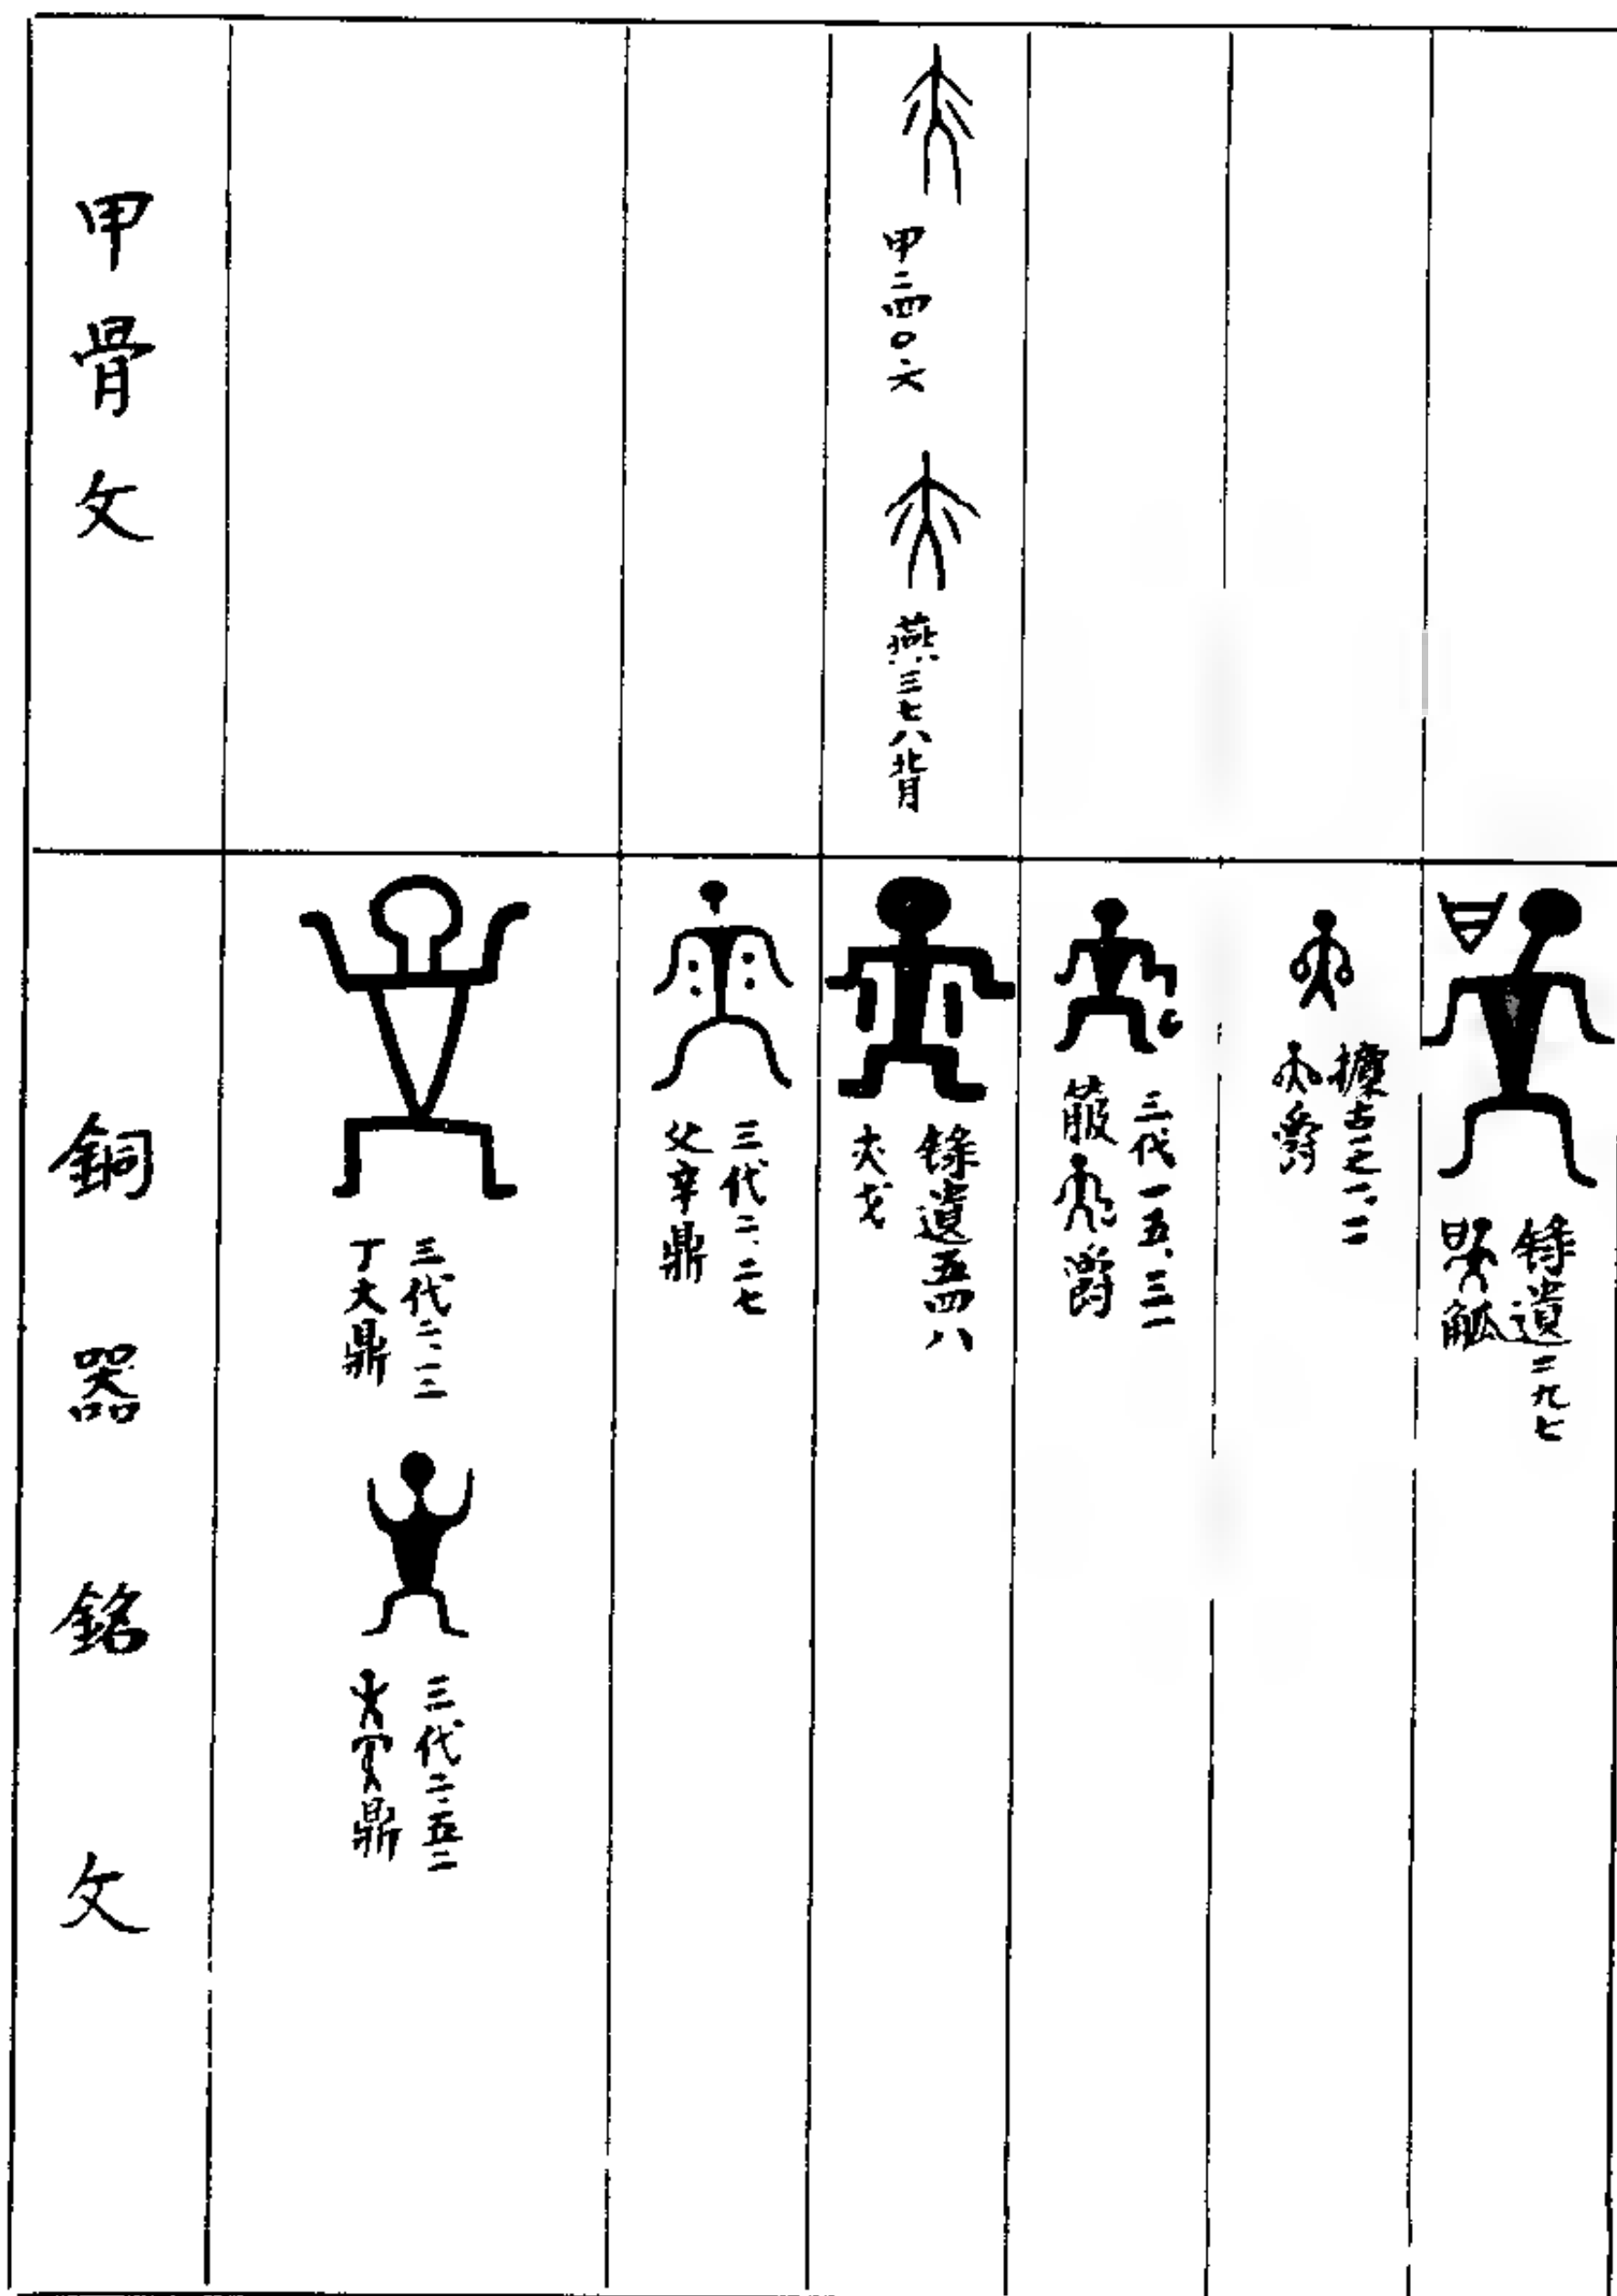 甲骨文
甲二四〇六
燕三七八背
銅器銘文
錄遺二九七
觚
攈古一之一.二
爵
三代一五.三一
箙 爵
錄遺五四八
夫戈
三代二.二七
父辛鼎
三代二.一二
丁大鼎
三代二.五二
鼎